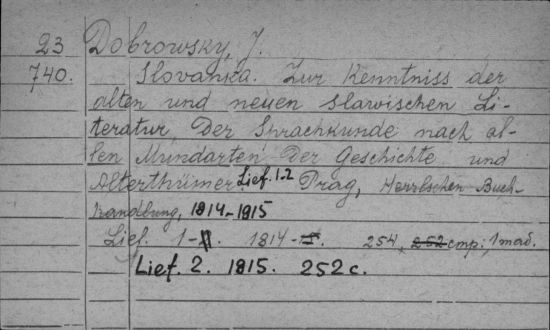 23 Dobrowsky, J.
740. Slovanka. Zur Kenntniss der
alten und neuen slawischen Li-
teratur, Der Sprachkunde nach al-
len Mundarten Der Geschichte und
Alterthümer Lief. 1-2 Prag, Herrlschen Buch-
handlbung, 1814-1915
Lief. 1-II. 1814-15. 254, 252 стр; 1 табл.
Lief. 2. 1815. 252 с.